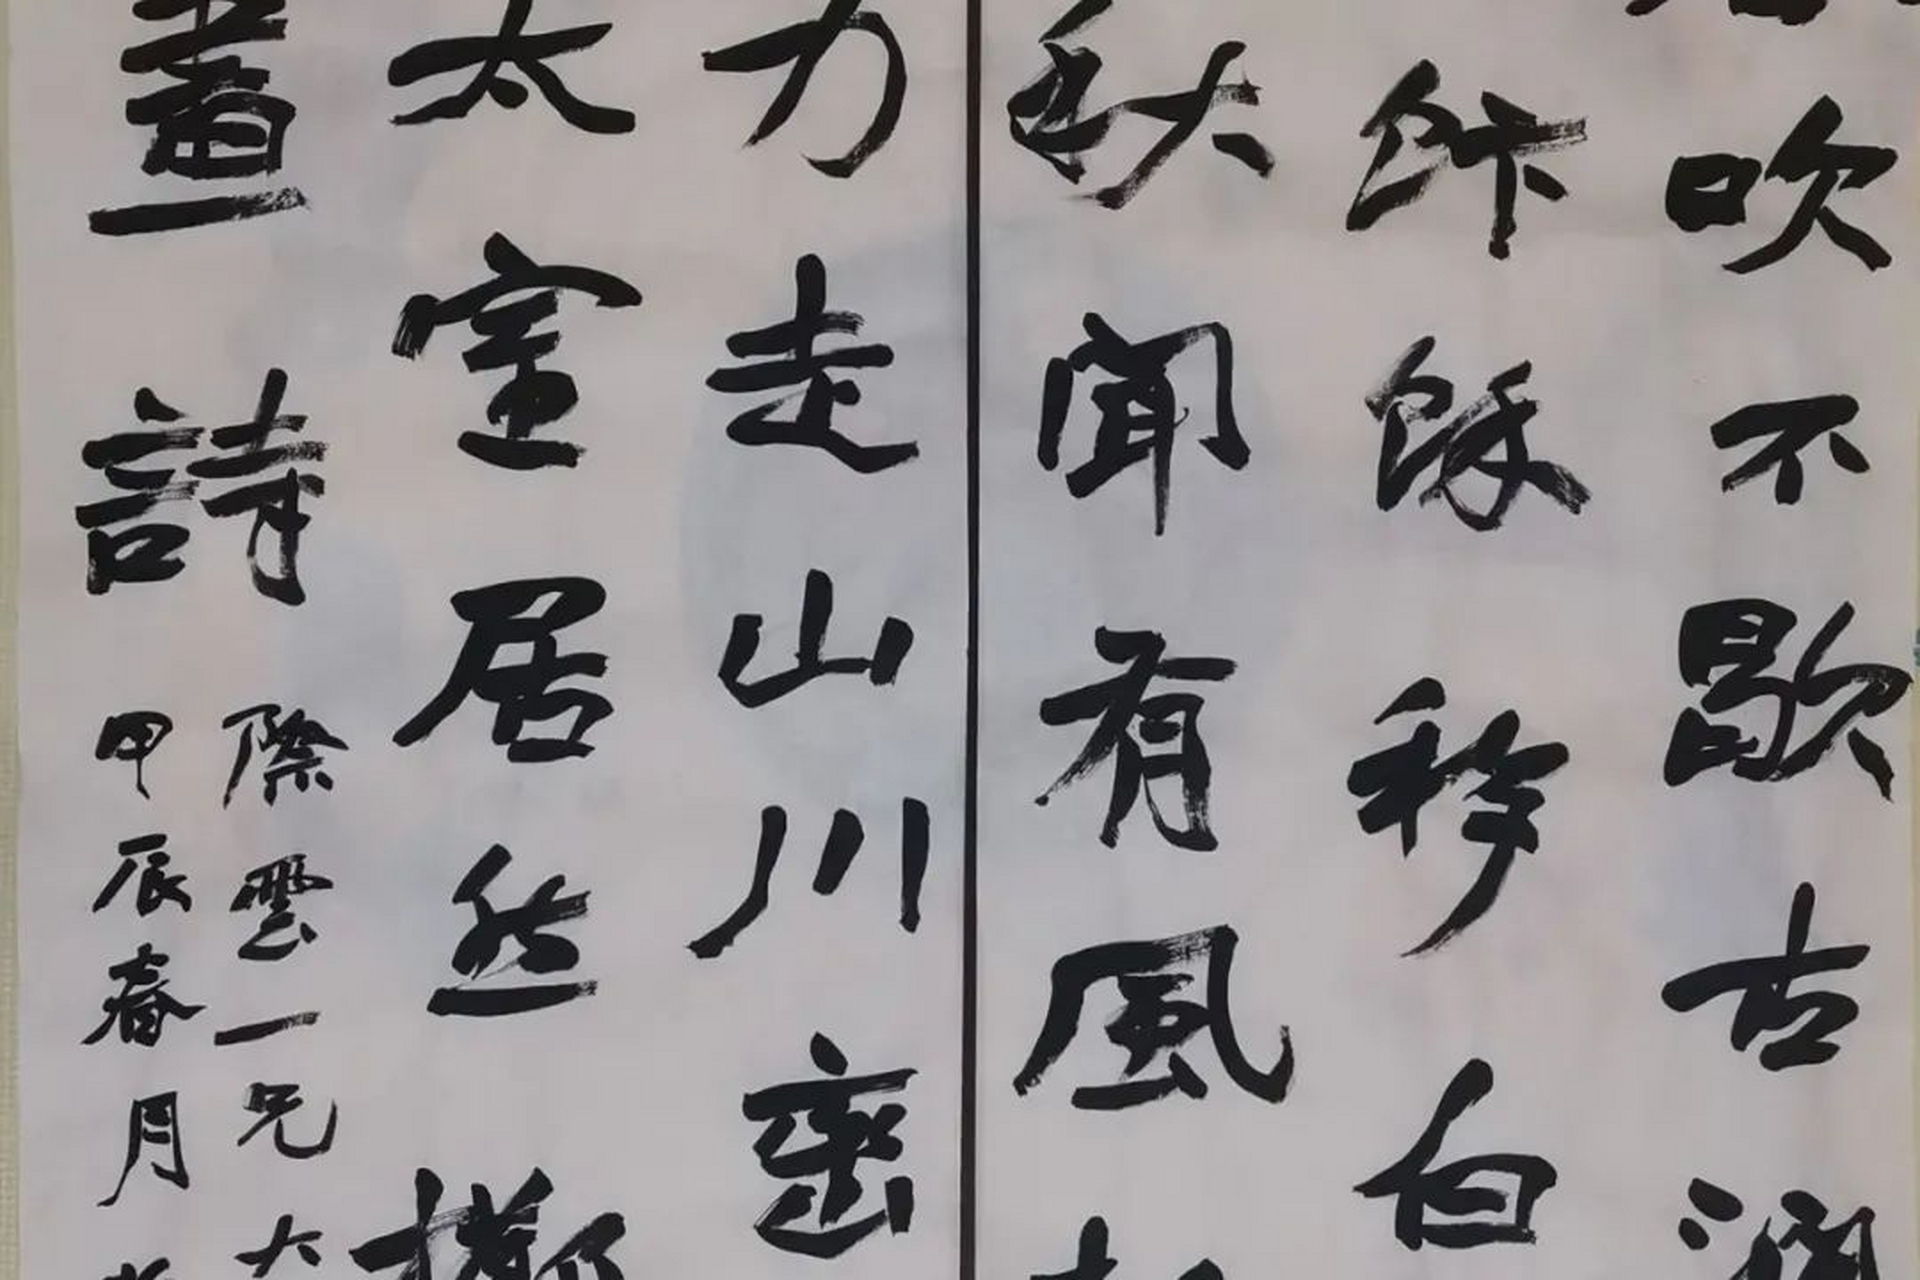 吹不歇古澗
飰餘移白
秋聞有風
力走山川巒
太室居然擲
畫詩
際雲一兄大
甲辰春月